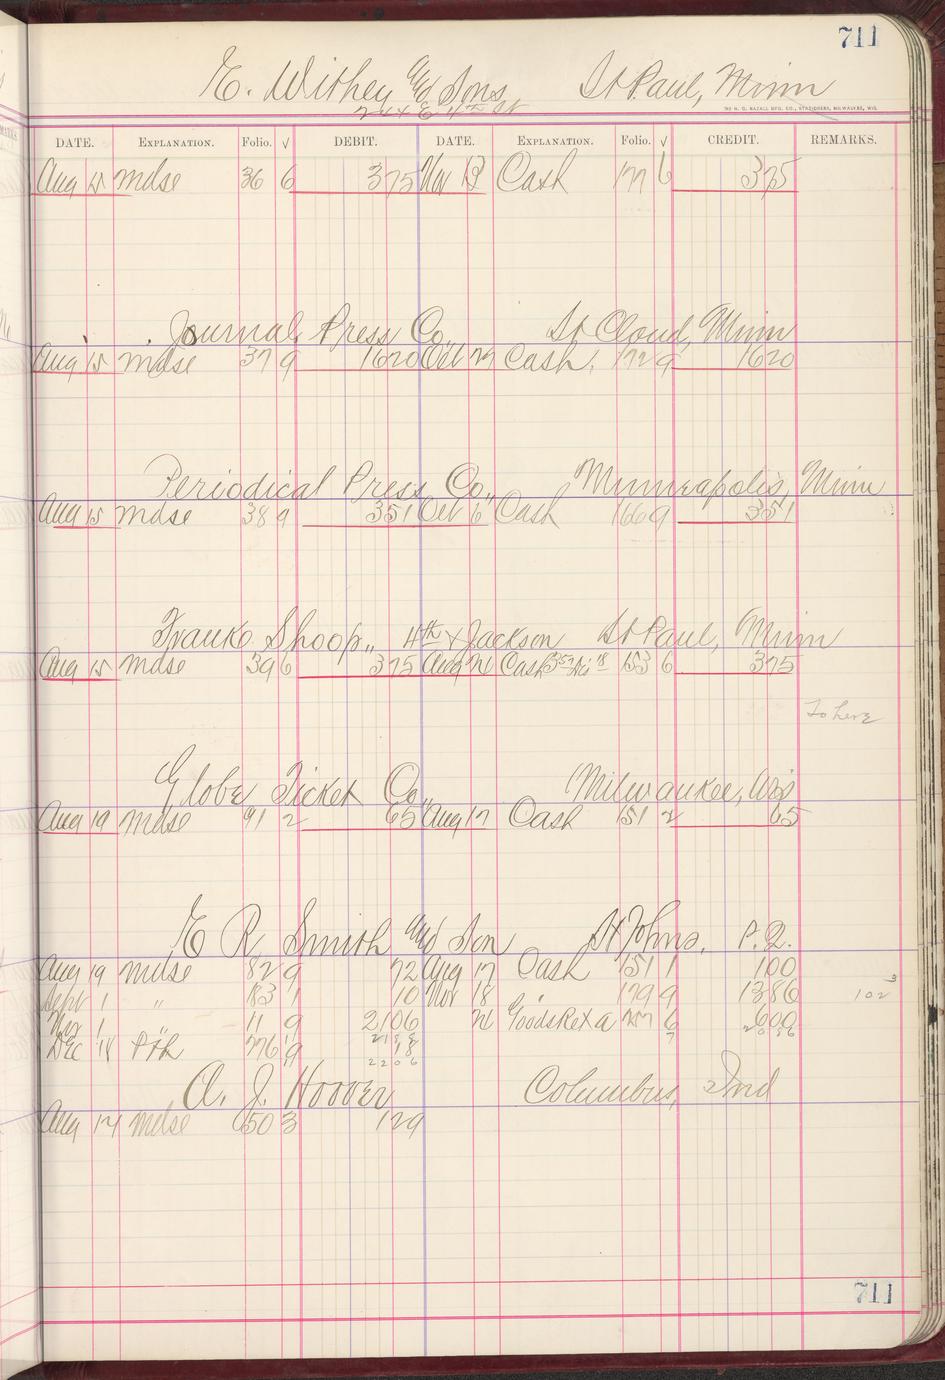 711
E. Withey and Sons St Paul, Minn
244 E 4th St
DATE. EXPLANATION. Folio. √ DEBIT. DATE. EXPLANATION. Folio. √ CREDIT. REMARKS.
Aug 15 mdse 36 6 375 Nov 13 Cash 177 6 375
Journal Press Co., St Cloud, Minn
Aug 15 mdse 37 9 1620 Oct 27 Cash. 172 9 1620
Periodical Press Co., Minneapolis, Minn
Aug 15 mdse 38 9 351 Oct 6 Cash 166 9 351
Frank Shoop,, 4th & Jackson St Paul, Minn
Aug 15 mdse 39 6 375 Aug Cash 153 6 375
To here
Globe Ticket Co., Milwaukee, Wis
Aug 19 mdse 91 2 65 Aug 17 Cash 151 2 65
E R Smith and Son St Johns, P.Q.
Aug 19 mdse 82 9 72 Aug 17 Cash 151 1 100
Sept 1 " 83 1 10 Nov 18 " 179 9 1386
Nov 1 " 11 9 2106 Goods Ret a 6 600
Dec 18 776 9 18
2206
A. J. Hoover Columbus, Ind
Aug 14 mdse 50 3 129
711